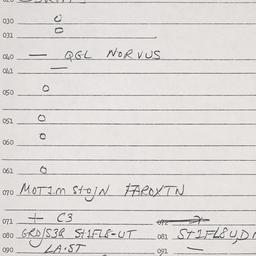 030 O
031 O
040 — QGL NORVUS
041 —
050 O
051 O
060 O
061 O
070 MOTIM StOJN
071 + C3
080 GRD/S3R St1FL8-UT 081 St1FL8U,D
090 LA·ST 091 —